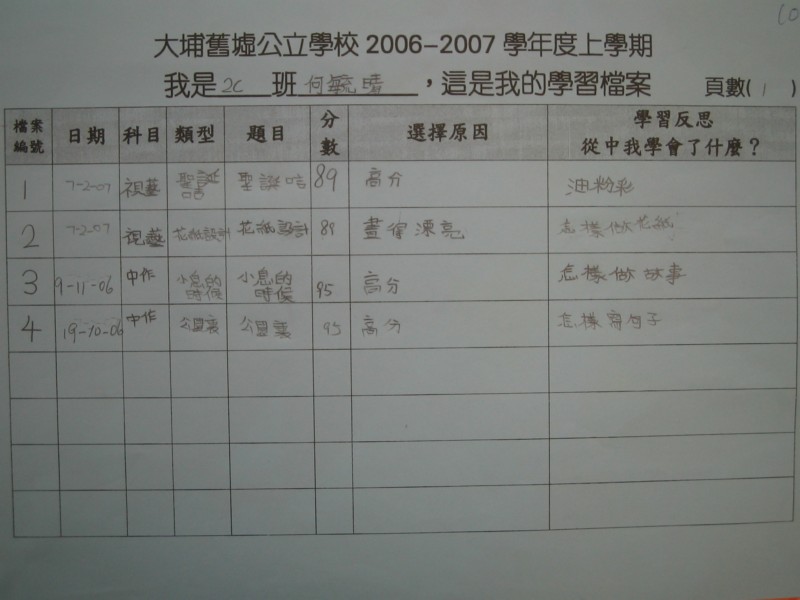 大埔舊墟公立學校 2006-2007 學年度上學期
我是 2C 班 何毓晴 ,這是我的學習檔案 頁數( 1 )
檔案編號 日期 科目 類型 題目 分數 選擇原因 學習反思 從中我學會了什麼?
1 7-2-07 視藝 聖誕咭 聖誕咭 89 高分 油粉彩
2 7-2-07 視藝 花紙設計 花紙設計 89 畫得漂亮 怎樣做花紙
3 9-11-06 中作 小息的時候 小息的時候 95 高分 怎樣做故事
4 19-10-06 中作 公園裏 公園裏 95 高分 怎樣寫句子